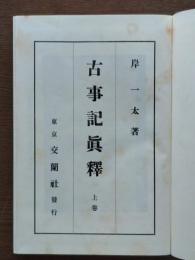 岸一太著
古事記眞釋
上卷
東京 交蘭社 發行